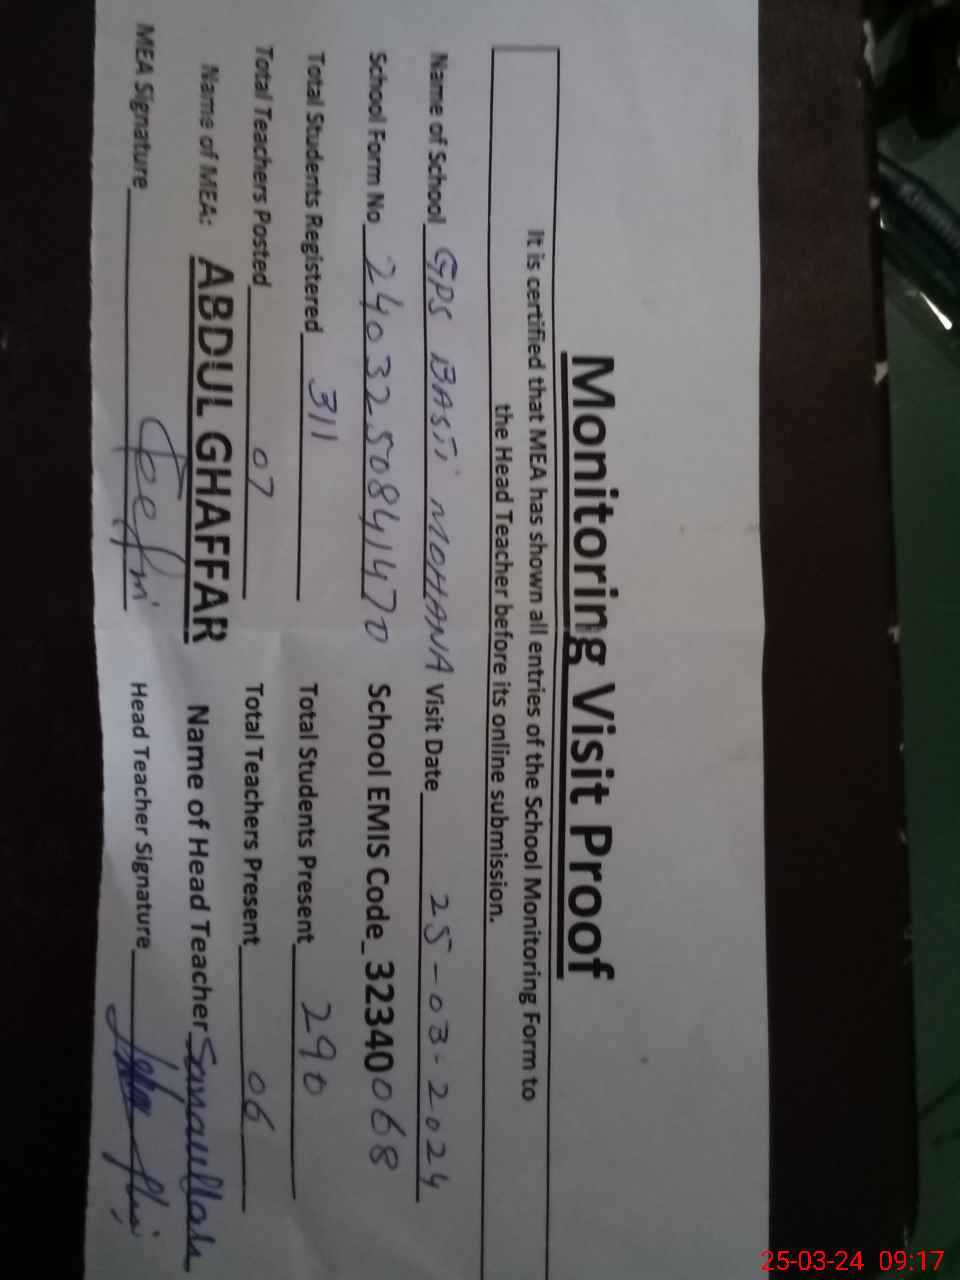 Monitoring Visit Proof
It is certified that MEA has shown all entries of the School Monitoring Form to
the Head Teacher before its online submission.
Name of School GPS BASTI MOHANA Visit Date 25-03-2024
School Form No 2403250841470 School EMIS Code 32340068
Total Students Registered 311 Total Students Present 290
Total Teachers Posted 07 Total Teachers Present 06
Name of MEA: ABDUL GHAFFAR Name of Head Teacher Sanaullah
MEA Signature Head Teacher Signature
25-03-24 09:17